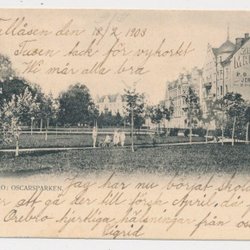 Tullåsen den 18/2 1903
Tusen tack för vykortet
Vi mår alla bra
O: OSCARSPARKEN.
Jag har nu börjat skol
er att gå der till förs April, du
Örebro hjertliga hälsningar från o
Sigrid